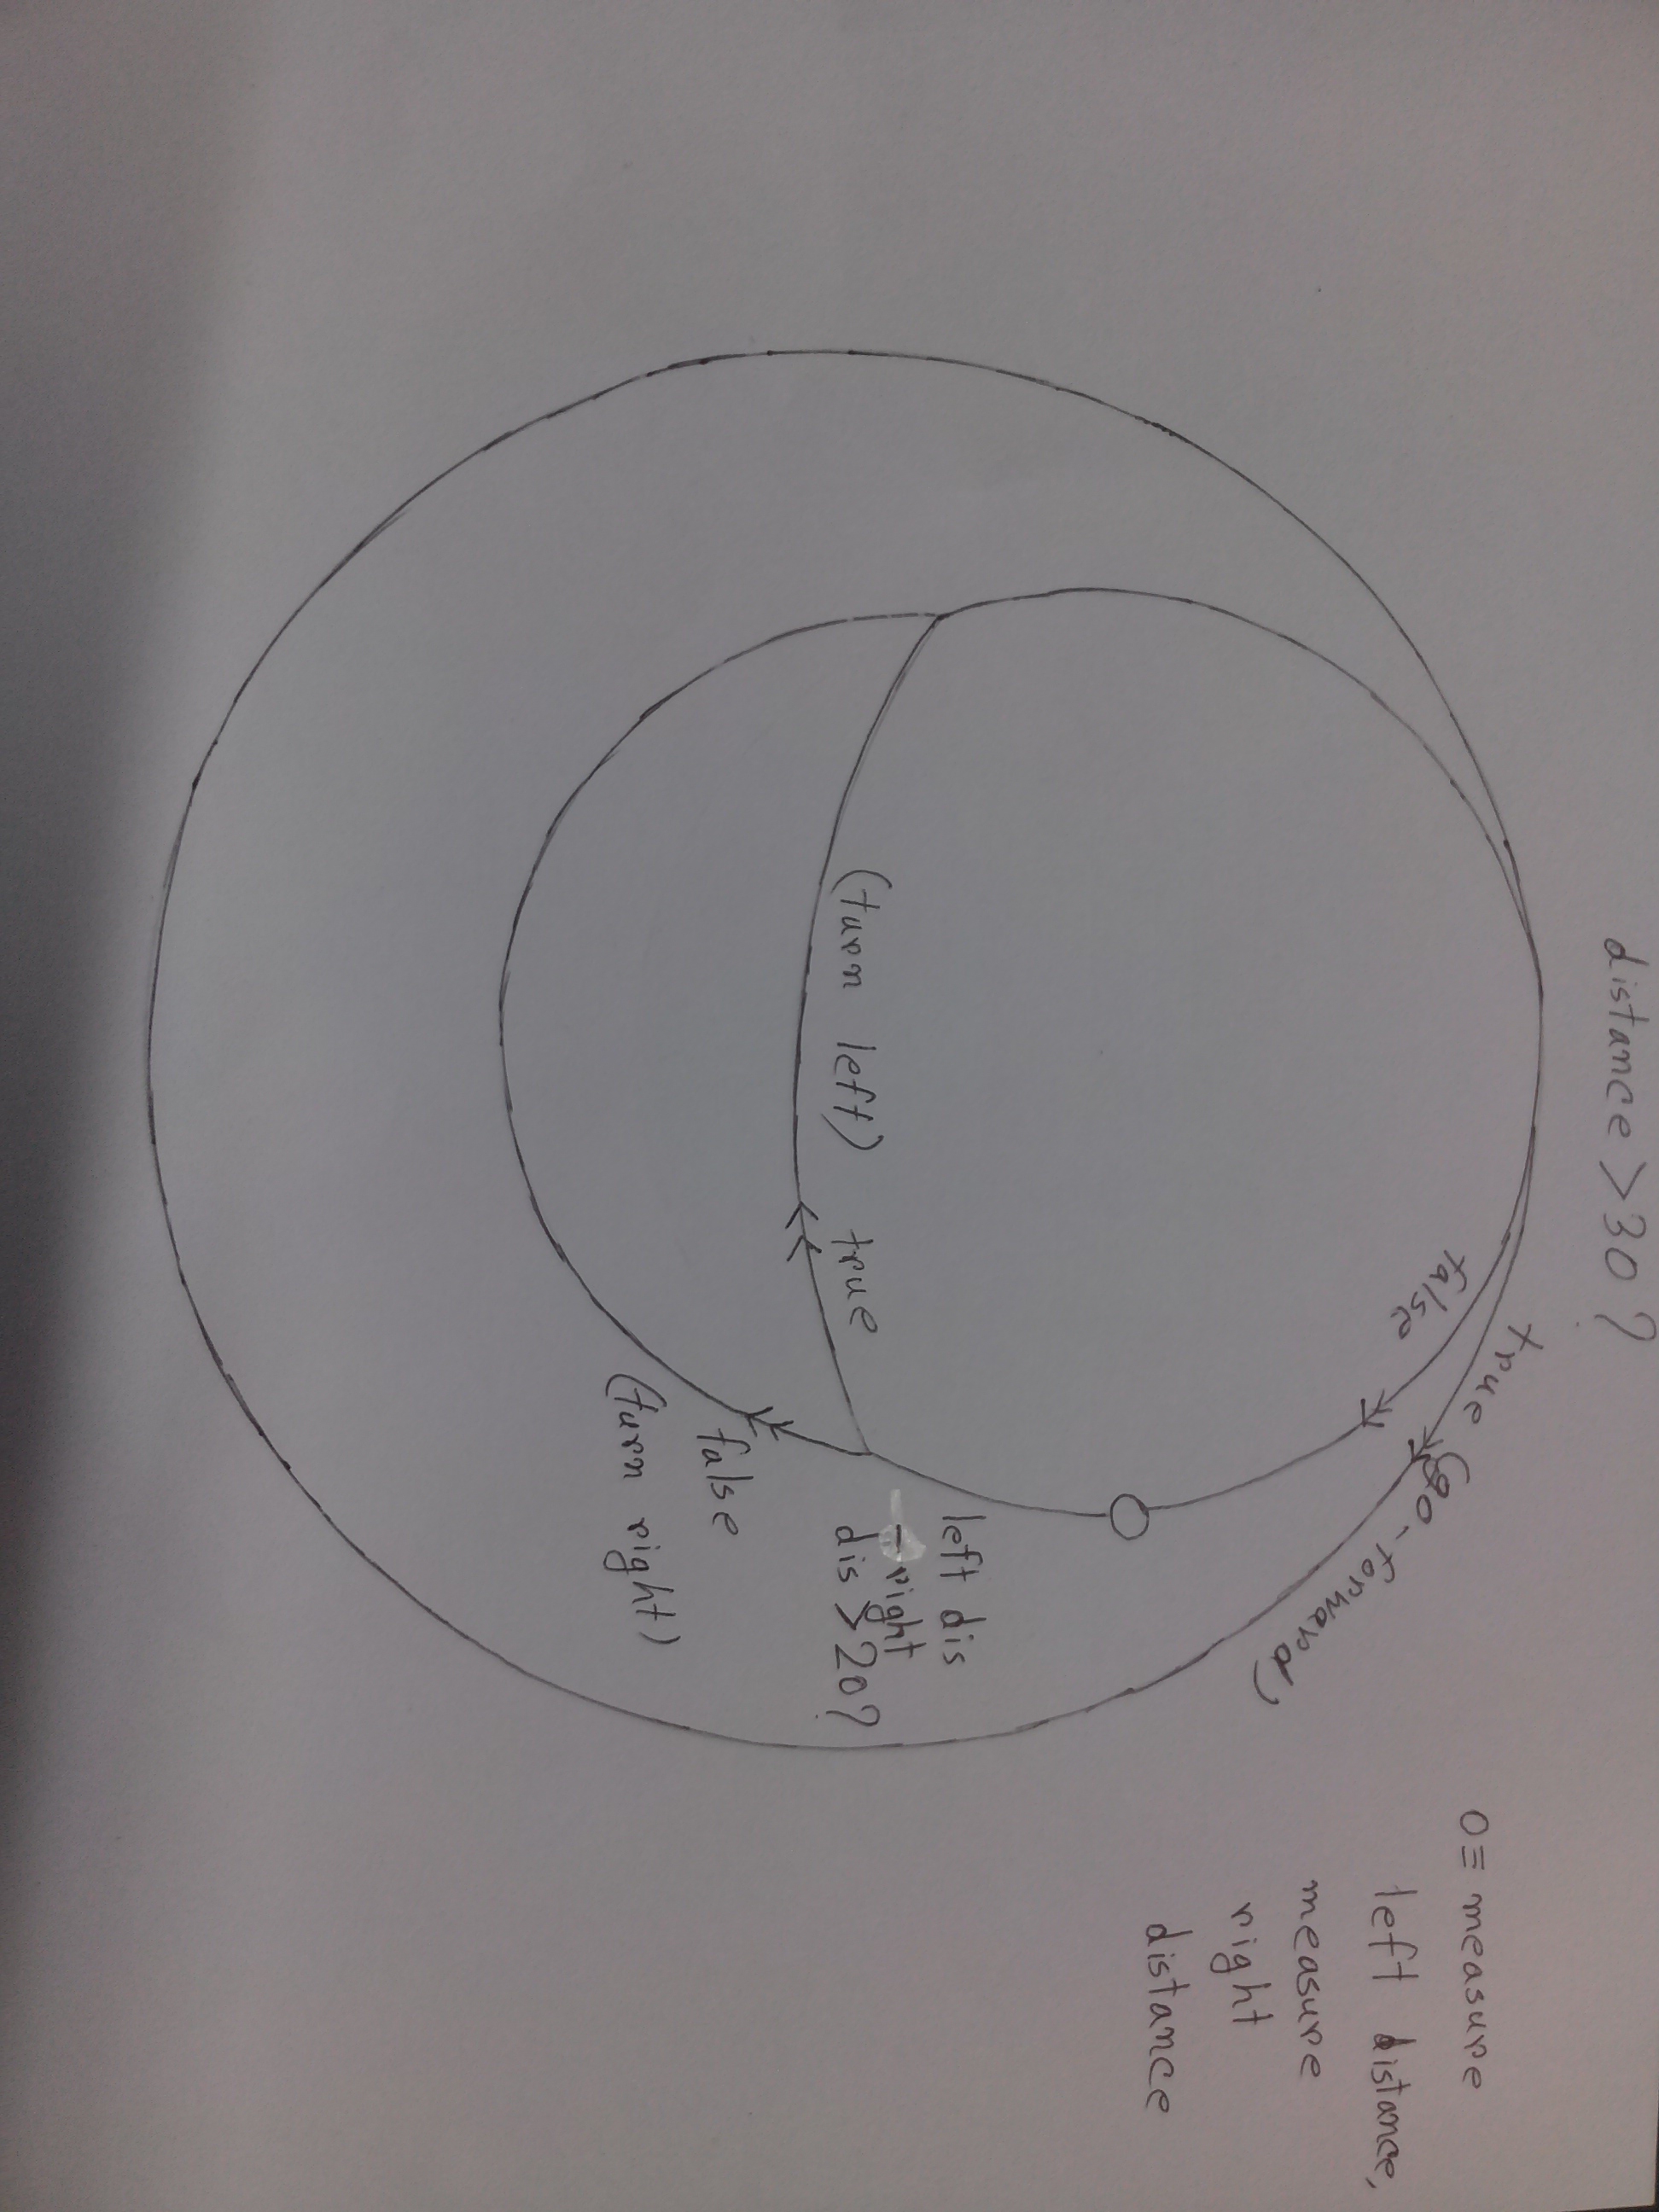 distance > 30 ?
true (go-forward)
false
O≡ measure
left distance,
measure
right
distance
left dis
- right
dis > 20?
(turn left) true
false
(turn right)